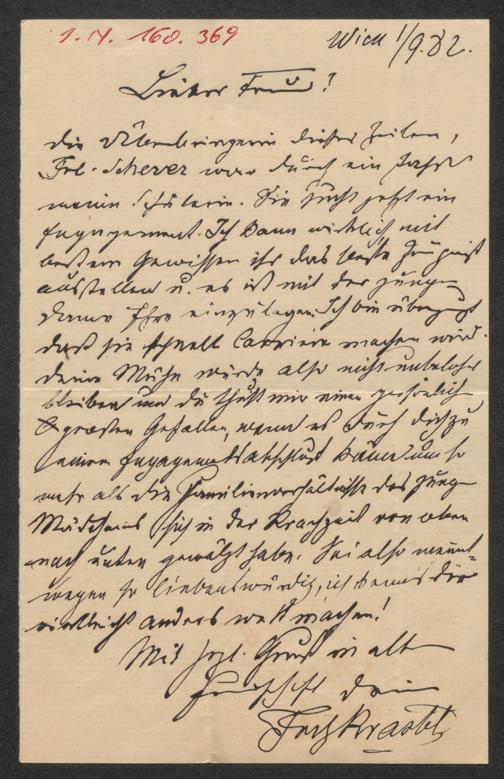 I.N. 168.369
Wien 1/9.82.
Lieber Freund!
die Überbringerin dieser Zeilen,
Frl. Scherer war durch ein Jahr
meine Schülerin. Sie sucht jetzt ein
Engagement. Ich kann wirklich mit
bestem Gewissen ihr das beste Zeugniß
ausstellen u. es ist mit der jungen
Dame Ehre einzulegen. Ich bin überzeugt
daß sie schnell Carriere machen wird.
deine Mühe würde also nicht unbelohnt
bleiben und du thust mir einen persönlich
großen Gefallen, wenn es durch dich zu
einem Engagementsabschluß käme um so
mehr als die Familienverhältnisse des jungen
Mädchens sich in der Krachzeit von oben
nach unten gewälzt haben. Sei also meinet-
wegen so liebenswürdig, ich kann's dir
vielleicht anders wett machen!
Mit hzl. Gruß in alter
Freundschaft dein